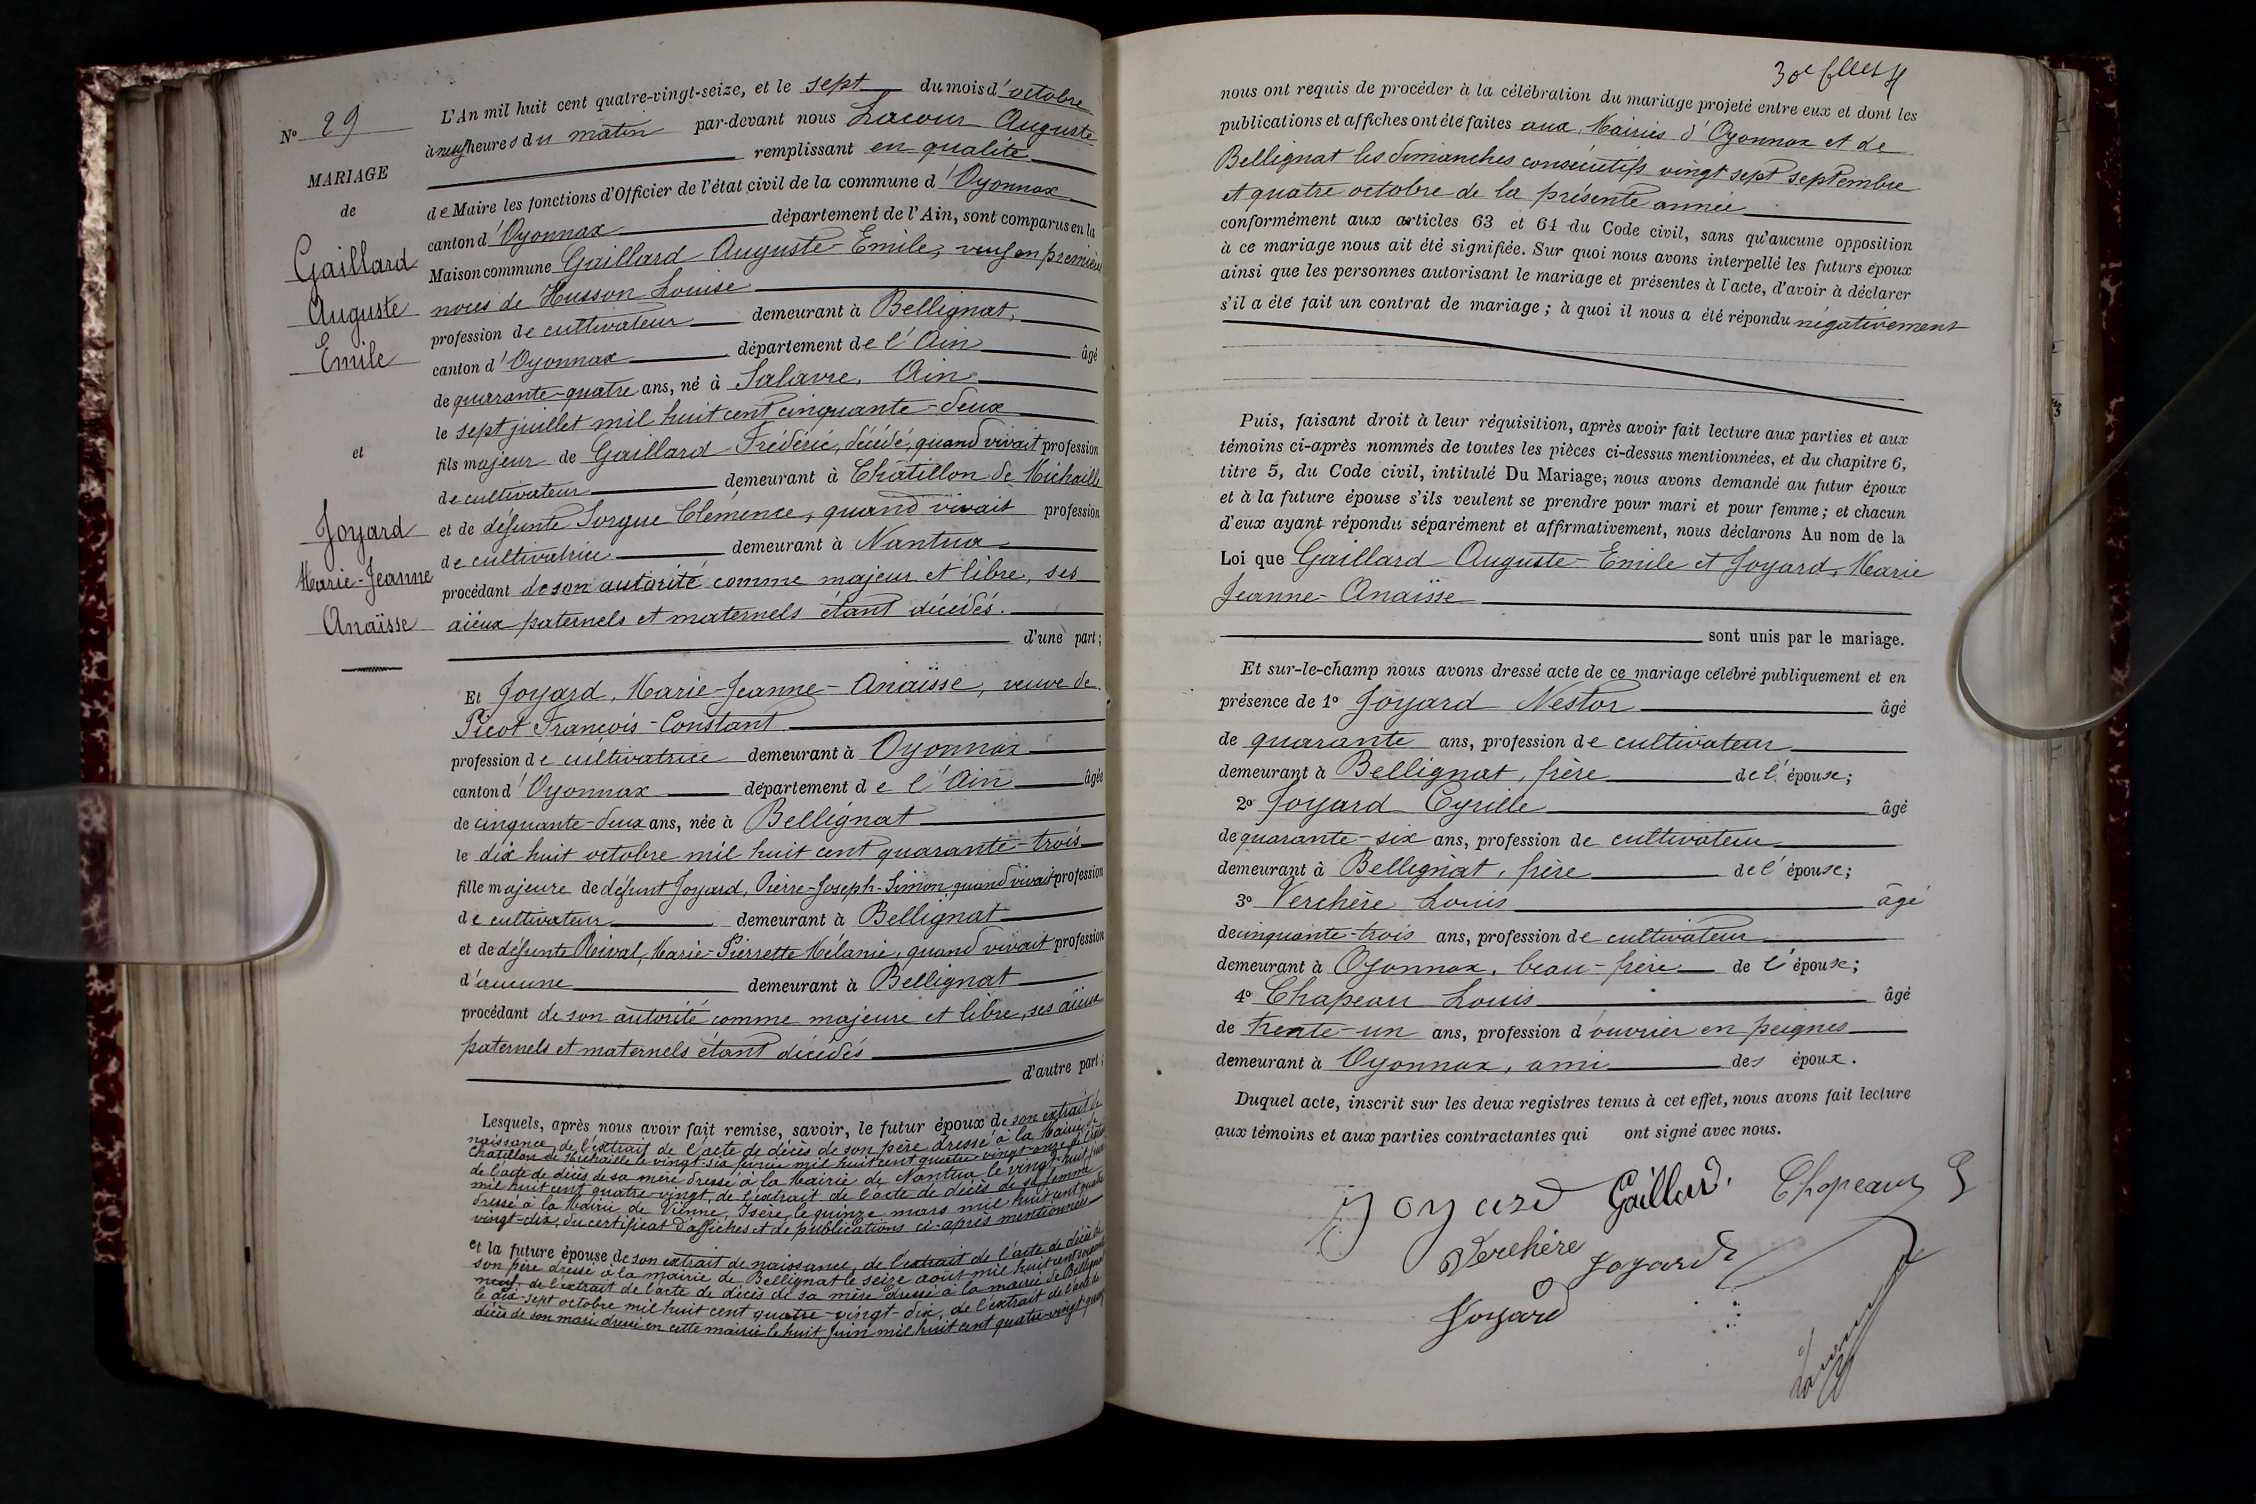 N° 29
MARIAGE
de
Gaillard
Auguste
Emile
et
Joyard
Marie-Jeanne
Anaïsse
L'An mil huit cent quatre-vingt-seize, et le sept du mois d'octobre
à neuf heures du matin par-devant nous Lacour Auguste
remplissant en qualité
de Maire les fonctions d'Officier de l'état civil de la commune d'Oyonnax
canton d'Oyonnax département de l'Ain, sont comparus en la
Maison commune Gaillard Auguste-Emile, veuf en premières
noces de Husson Louise
profession de cultivateur demeurant à Bellignat,
canton d'Oyonnax département de l'Ain âgé
de quarante-quatre ans, né à Salavre, Ain
le sept juillet mil huit cent cinquante-deux
fils majeur de Gaillard Frédéric, décédé, quand vivait profession
de cultivateur demeurant à Châtillon de Michaille
et de défunte Sorgue Clémence, quand vivait profession
de cultivatrice demeurant à Nantua
procédant de son autorité comme majeur et libre, ses
aïeux paternels et maternels étant décédés.
d'une part;
Et Joyard, Marie-Jeanne-Anaïsse, veuve de
Picot François-Constant
profession de cultivatrice demeurant à Oyonnax
canton d'Oyonnax département de l'Ain âgée
de cinquante-deux ans, née à Bellignat
le dix huit octobre mil huit cent quarante-trois
fille majeure de défunt Joyard, Pierre-Joseph-Simon, quand vivait profession
de cultivateur demeurant à Bellignat
et de défunte Rival, Marie-Pierrette Mélanie, quand vivait profession
d'aucune demeurant à Bellignat
procédant de son autorité comme majeure et libre, ses aïeux
paternels et maternels étant décédés
d'autre part;
Lesquels, après nous avoir fait remise, savoir, le futur époux de son extrait de
naissance, de l'extrait de l'acte de décès de son père dressé à la Mairie de
Châtillon de Michaille le vingt-six février mil huit cent quatre vingt-onze, de l'extrait
de l'acte de décès de sa mère dressé à la Mairie de Nantua le vingt-huit
mil huit cent quatre-vingt, de l'extrait de l'acte de décès de sa femme
dressé à la Mairie de Vienne, Isère, le quinze mars mil huit cent quatre
vingt-dix, du certificat d'affiches et de publications ci-après mentionnées
et la future épouse de son extrait de naissance, de l'extrait de l'acte de décès de
son père dressé à la mairie de Bellignat le seize août mil huit cent soixante
neuf, de l'extrait de l'acte de décès de sa mère dressé à la mairie de Bellignat
le dix-sept octobre mil huit cent quatre-vingt-dix, de l'extrait de l'acte de
décès de son mari dressé en cette mairie le huit juin mil huit cent quatre-vingt-quatre
30e fllet
nous ont requis de procéder à la célébration du mariage projeté entre eux et dont les
publications et affiches ont été faites aux Mairies d'Oyonnax et de
Bellignat les dimanches consécutifs vingt sept septembre
et quatre octobre de la présente année
conformément aux articles 63 et 64 du Code civil, sans qu'aucune opposition
à ce mariage nous ait été signifiée. Sur quoi nous avons interpellé les futurs époux
ainsi que les personnes autorisant le mariage et présentes à l'acte, d'avoir à déclarer
s'il a été fait un contrat de mariage; à quoi il nous a été répondu négativement
Puis, faisant droit à leur réquisition, après avoir fait lecture aux parties et aux
témoins ci-après nommés de toutes les pièces ci-dessus mentionnées, et du chapitre 6,
titre 5, du Code civil, intitulé Du Mariage, nous avons demandé au futur époux
et à la future épouse s'ils veulent se prendre pour mari et pour femme; et chacun
d'eux ayant répondu séparément et affirmativement, nous déclarons Au nom de la
Loi que Gaillard Auguste-Emile et Joyard, Marie
Jeanne-Anaïsse
sont unis par le mariage.
Et sur-le-champ nous avons dressé acte de ce mariage célébré publiquement et en
présence de 1° Joyard Nestor âgé
de quarante ans, profession de cultivateur
demeurant à Bellignat, frère de l'épouse;
2° Joyard Cyrille âgé
de quarante-six ans, profession de cultivateur
demeurant à Bellignat, frère de l'épouse;
3° Verchère Louis âgé
de cinquante-trois ans, profession de cultivateur
demeurant à Oyonnax, beau-frère de l'épouse;
4° Chapeau Louis âgé
de trente-un ans, profession d'ouvrier en peignes
demeurant à Oyonnax, ami des époux.
Duquel acte, inscrit sur les deux registres tenus à cet effet, nous avons fait lecture
aux témoins et aux parties contractantes qui ont signé avec nous.
Joyard Gaillard. Chapeau
Verchère Joyard
Joyard
Lacour